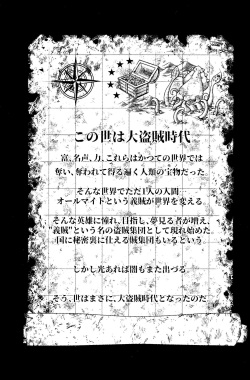 この世は大盗賊時代
富、名声、力、これらはかつての世界では
奪い、奪われて得る遍く人類の宝物だった
そんな世界でただ1人の人間…
オールマイドという義賊が世界を変える
そんな英雄に憧れ、目指し、夢見る者が増え、
"義賊"という名の盗賊集団として現れ始めた
国に秘密裏に仕える賊集団もいるという
しかし光あれば闇もまた出づる
そう、世はまさに、大盗賊時代となったのだ